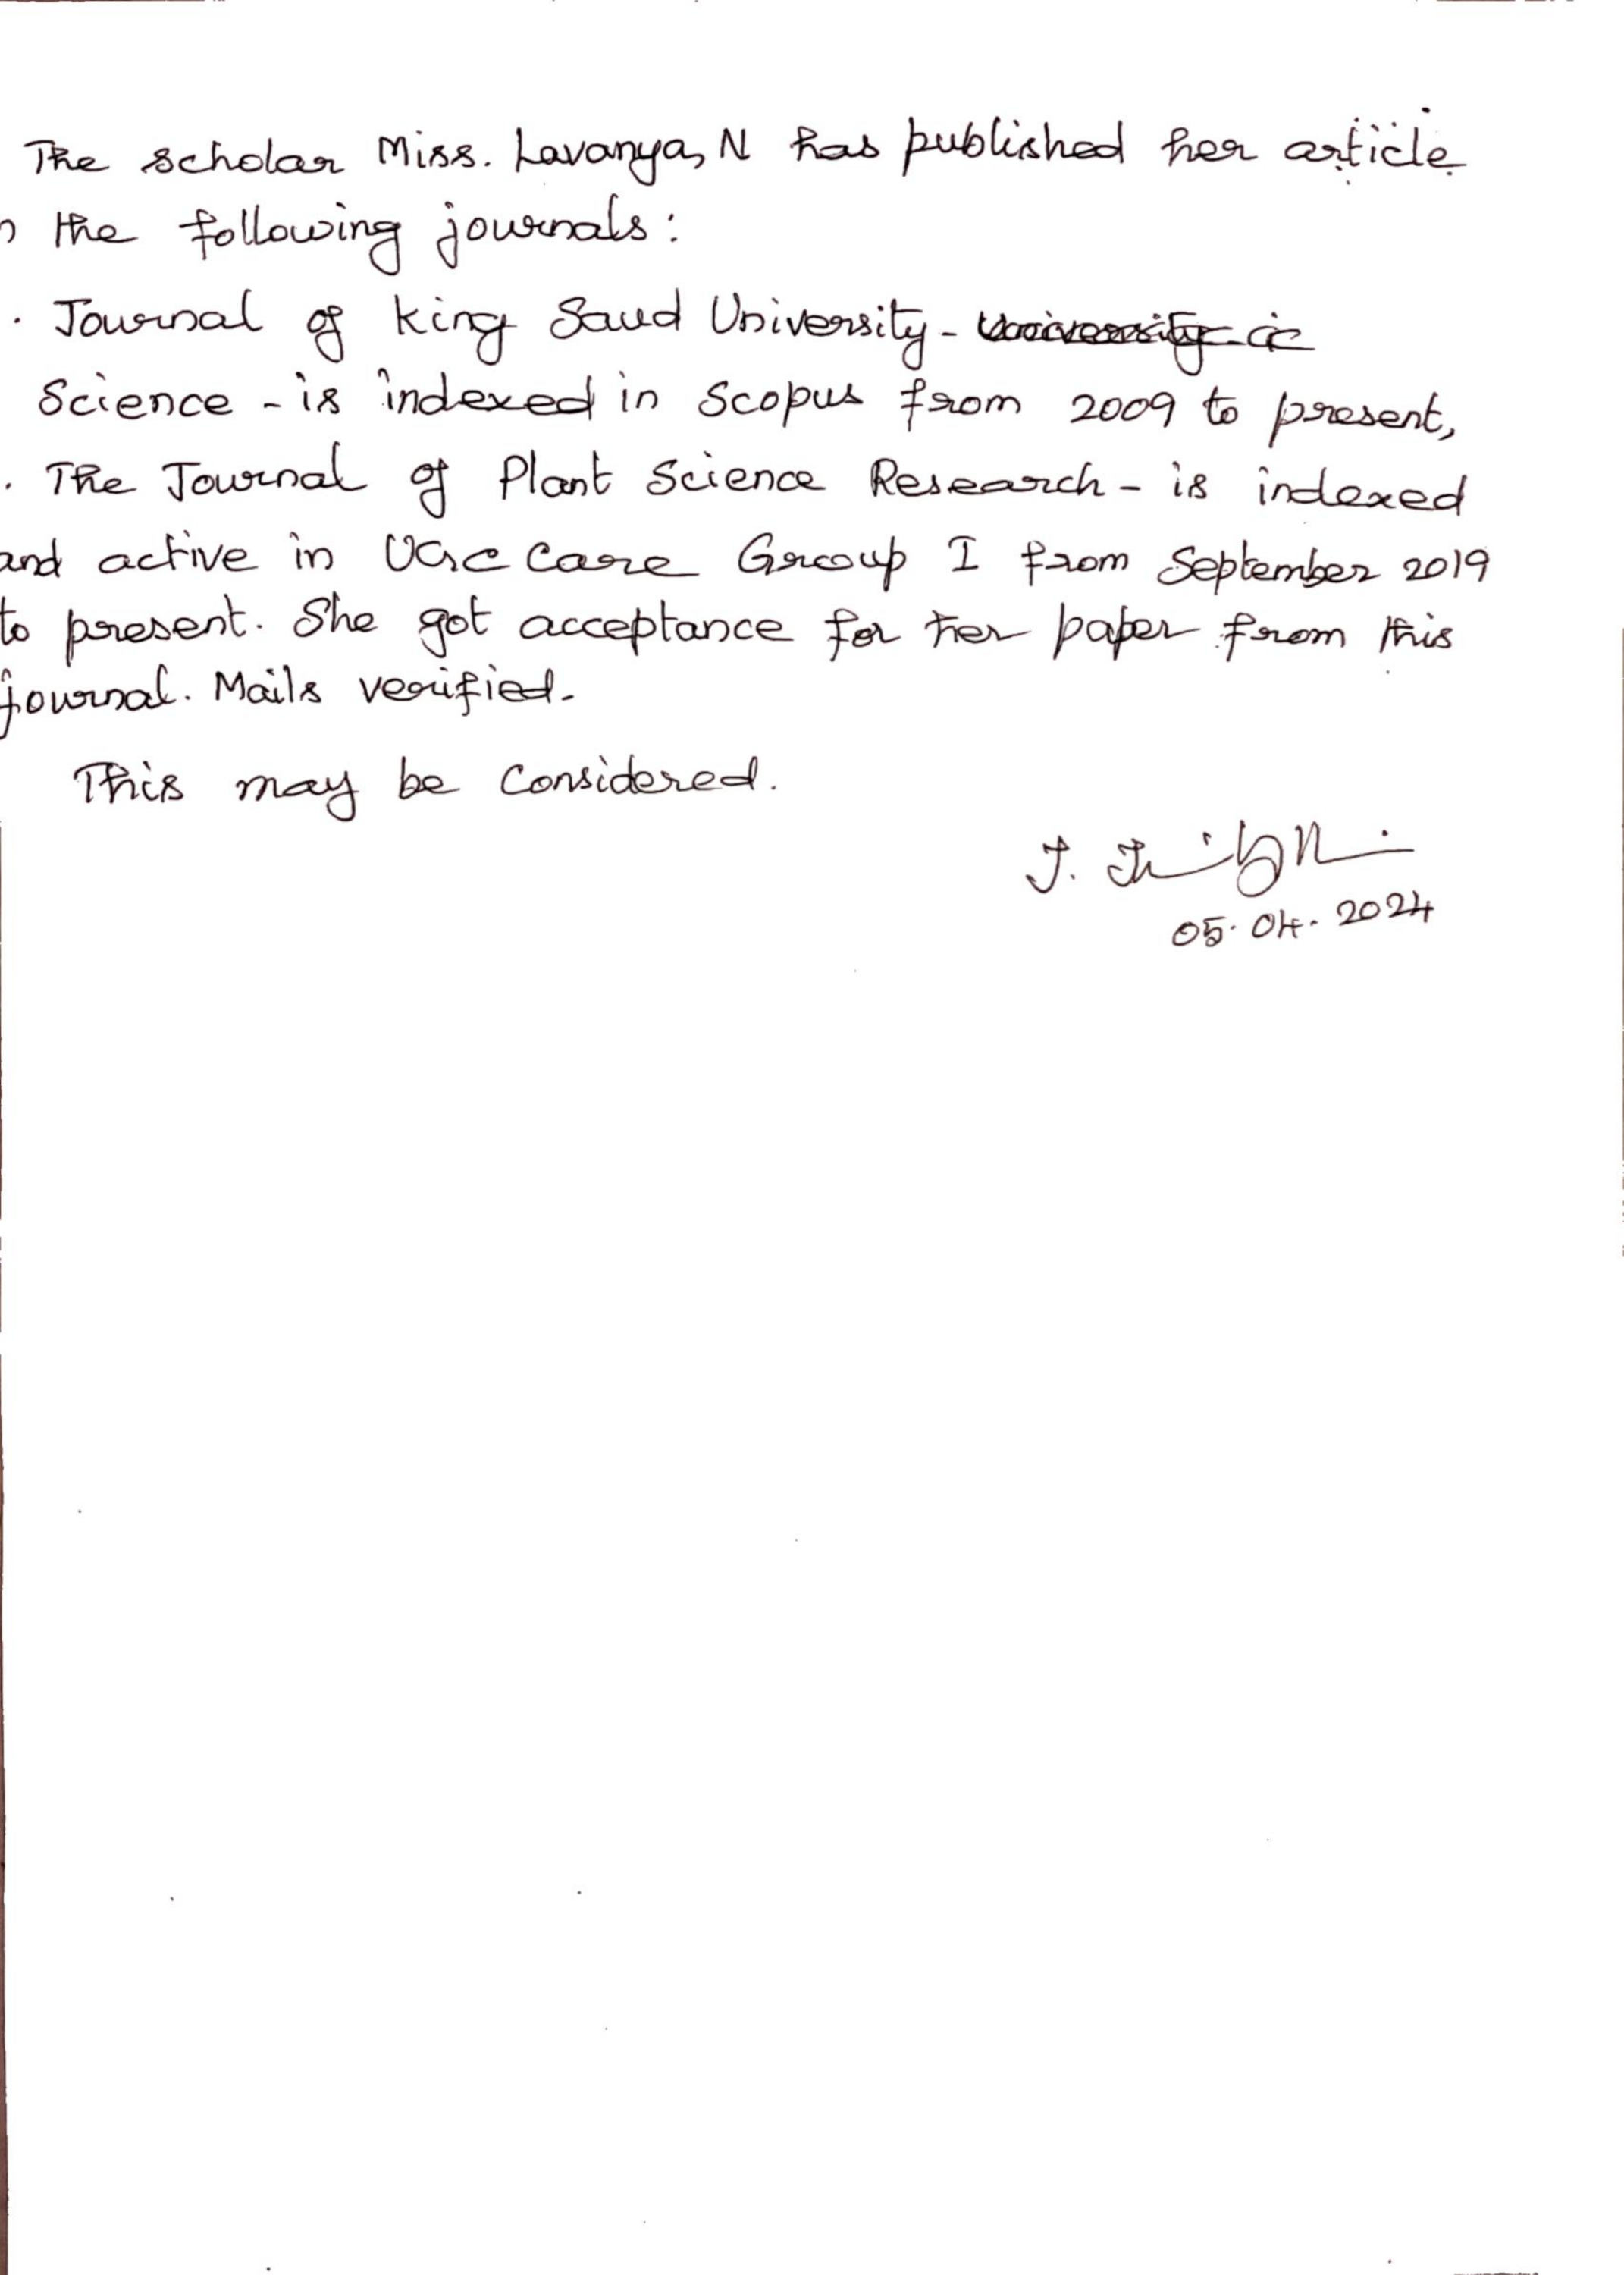 The scholar Miss. Lavanya, N has published her article
the following journals:
. Journal of King Saud University - ~~University - is~~
Science - is indexed in Scopus from 2009 to present,
. The Journal of Plant Science Research - is indexed
and active in UGC Care Group I from September 2019
to present. She got acceptance for her paper from this
journal. Mails verified.
This may be considered.
J.
05.04.2024